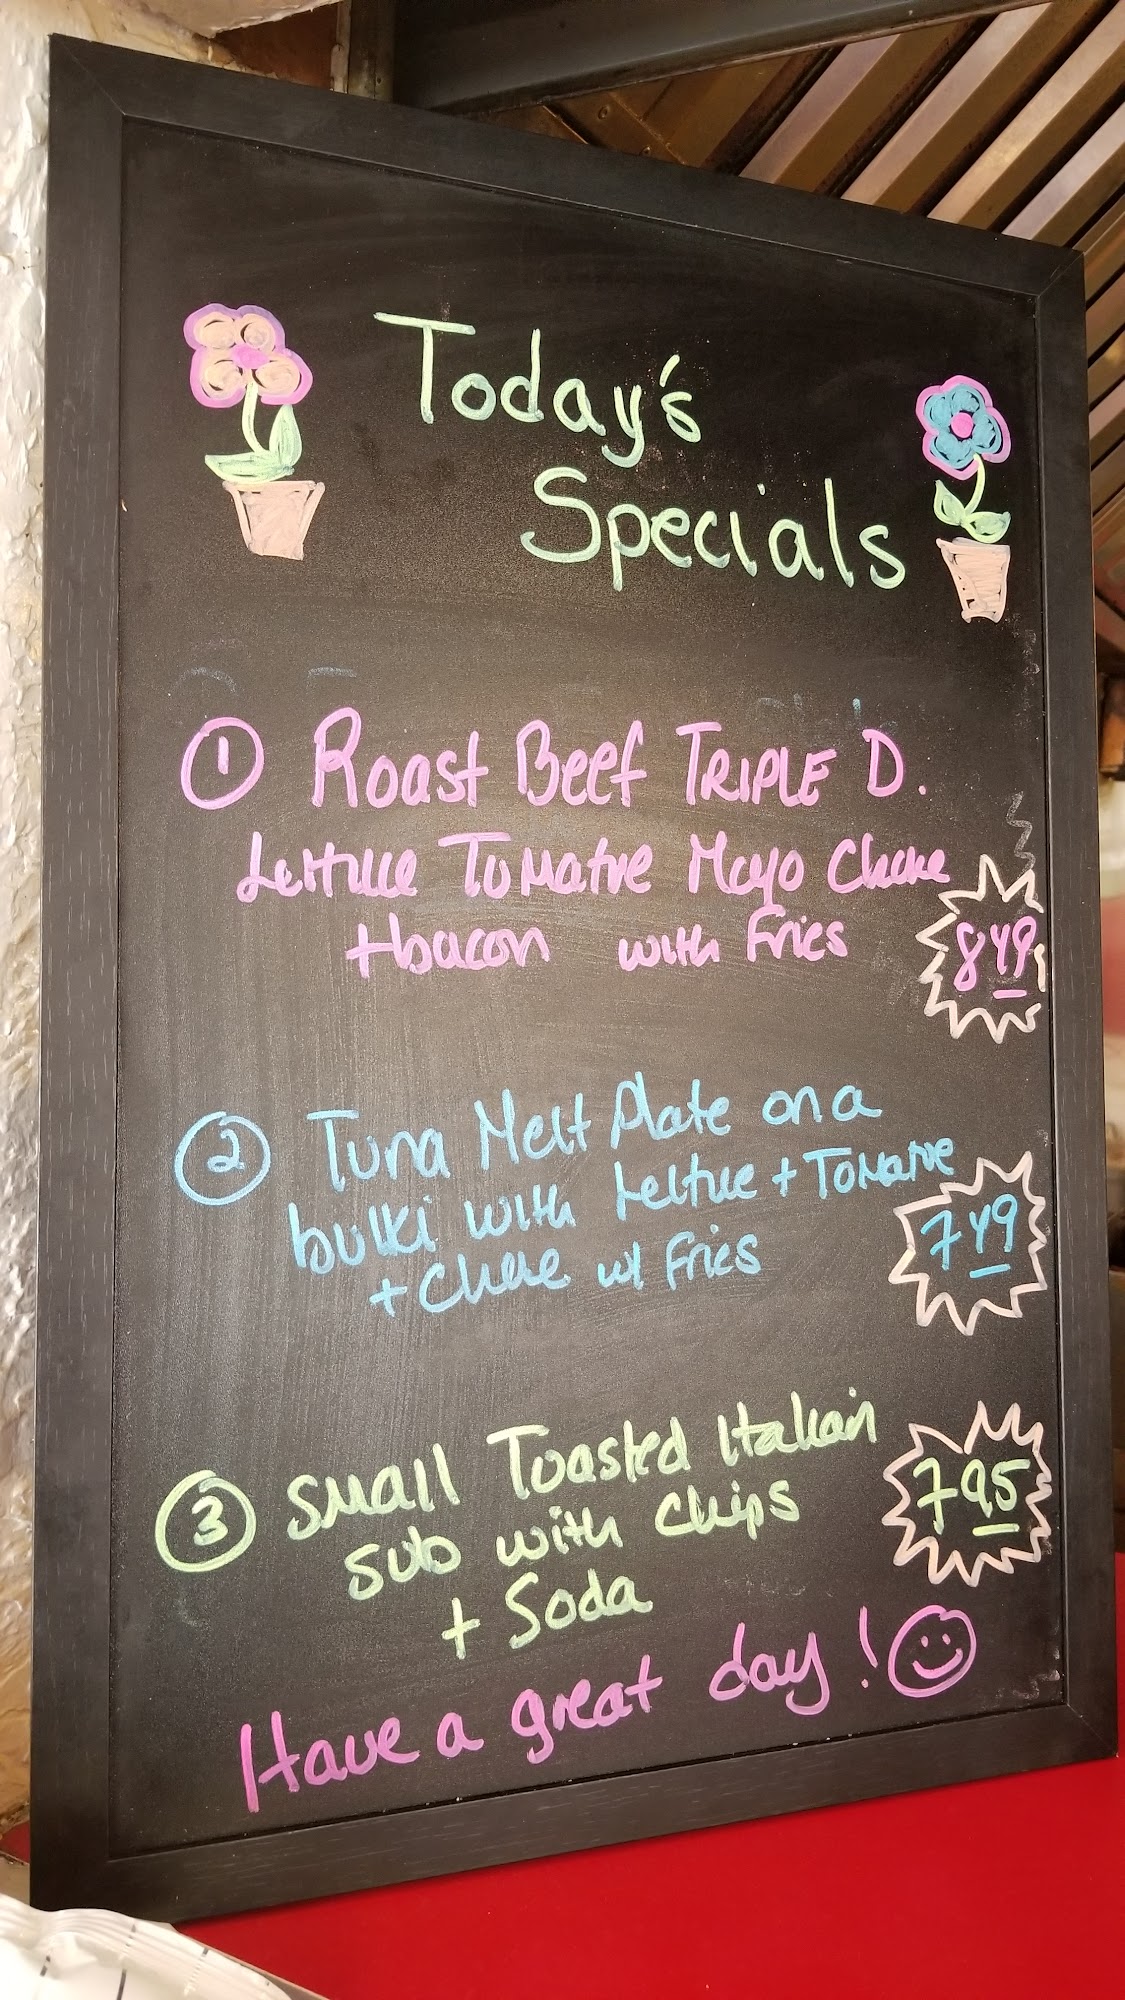 Today's
Specials
1 Roast Beef TRIPLE D.
Lettuce Tomatoe Mayo Cheese
+ bacon with Fries
849
2 Tuna Melt Plate on a
bulki with Lettuce + Tomatoe
+ Cheese w/ Fries
749
3 Small Toasted Italian
sub with Chips
+ Soda
795
Have a great day!